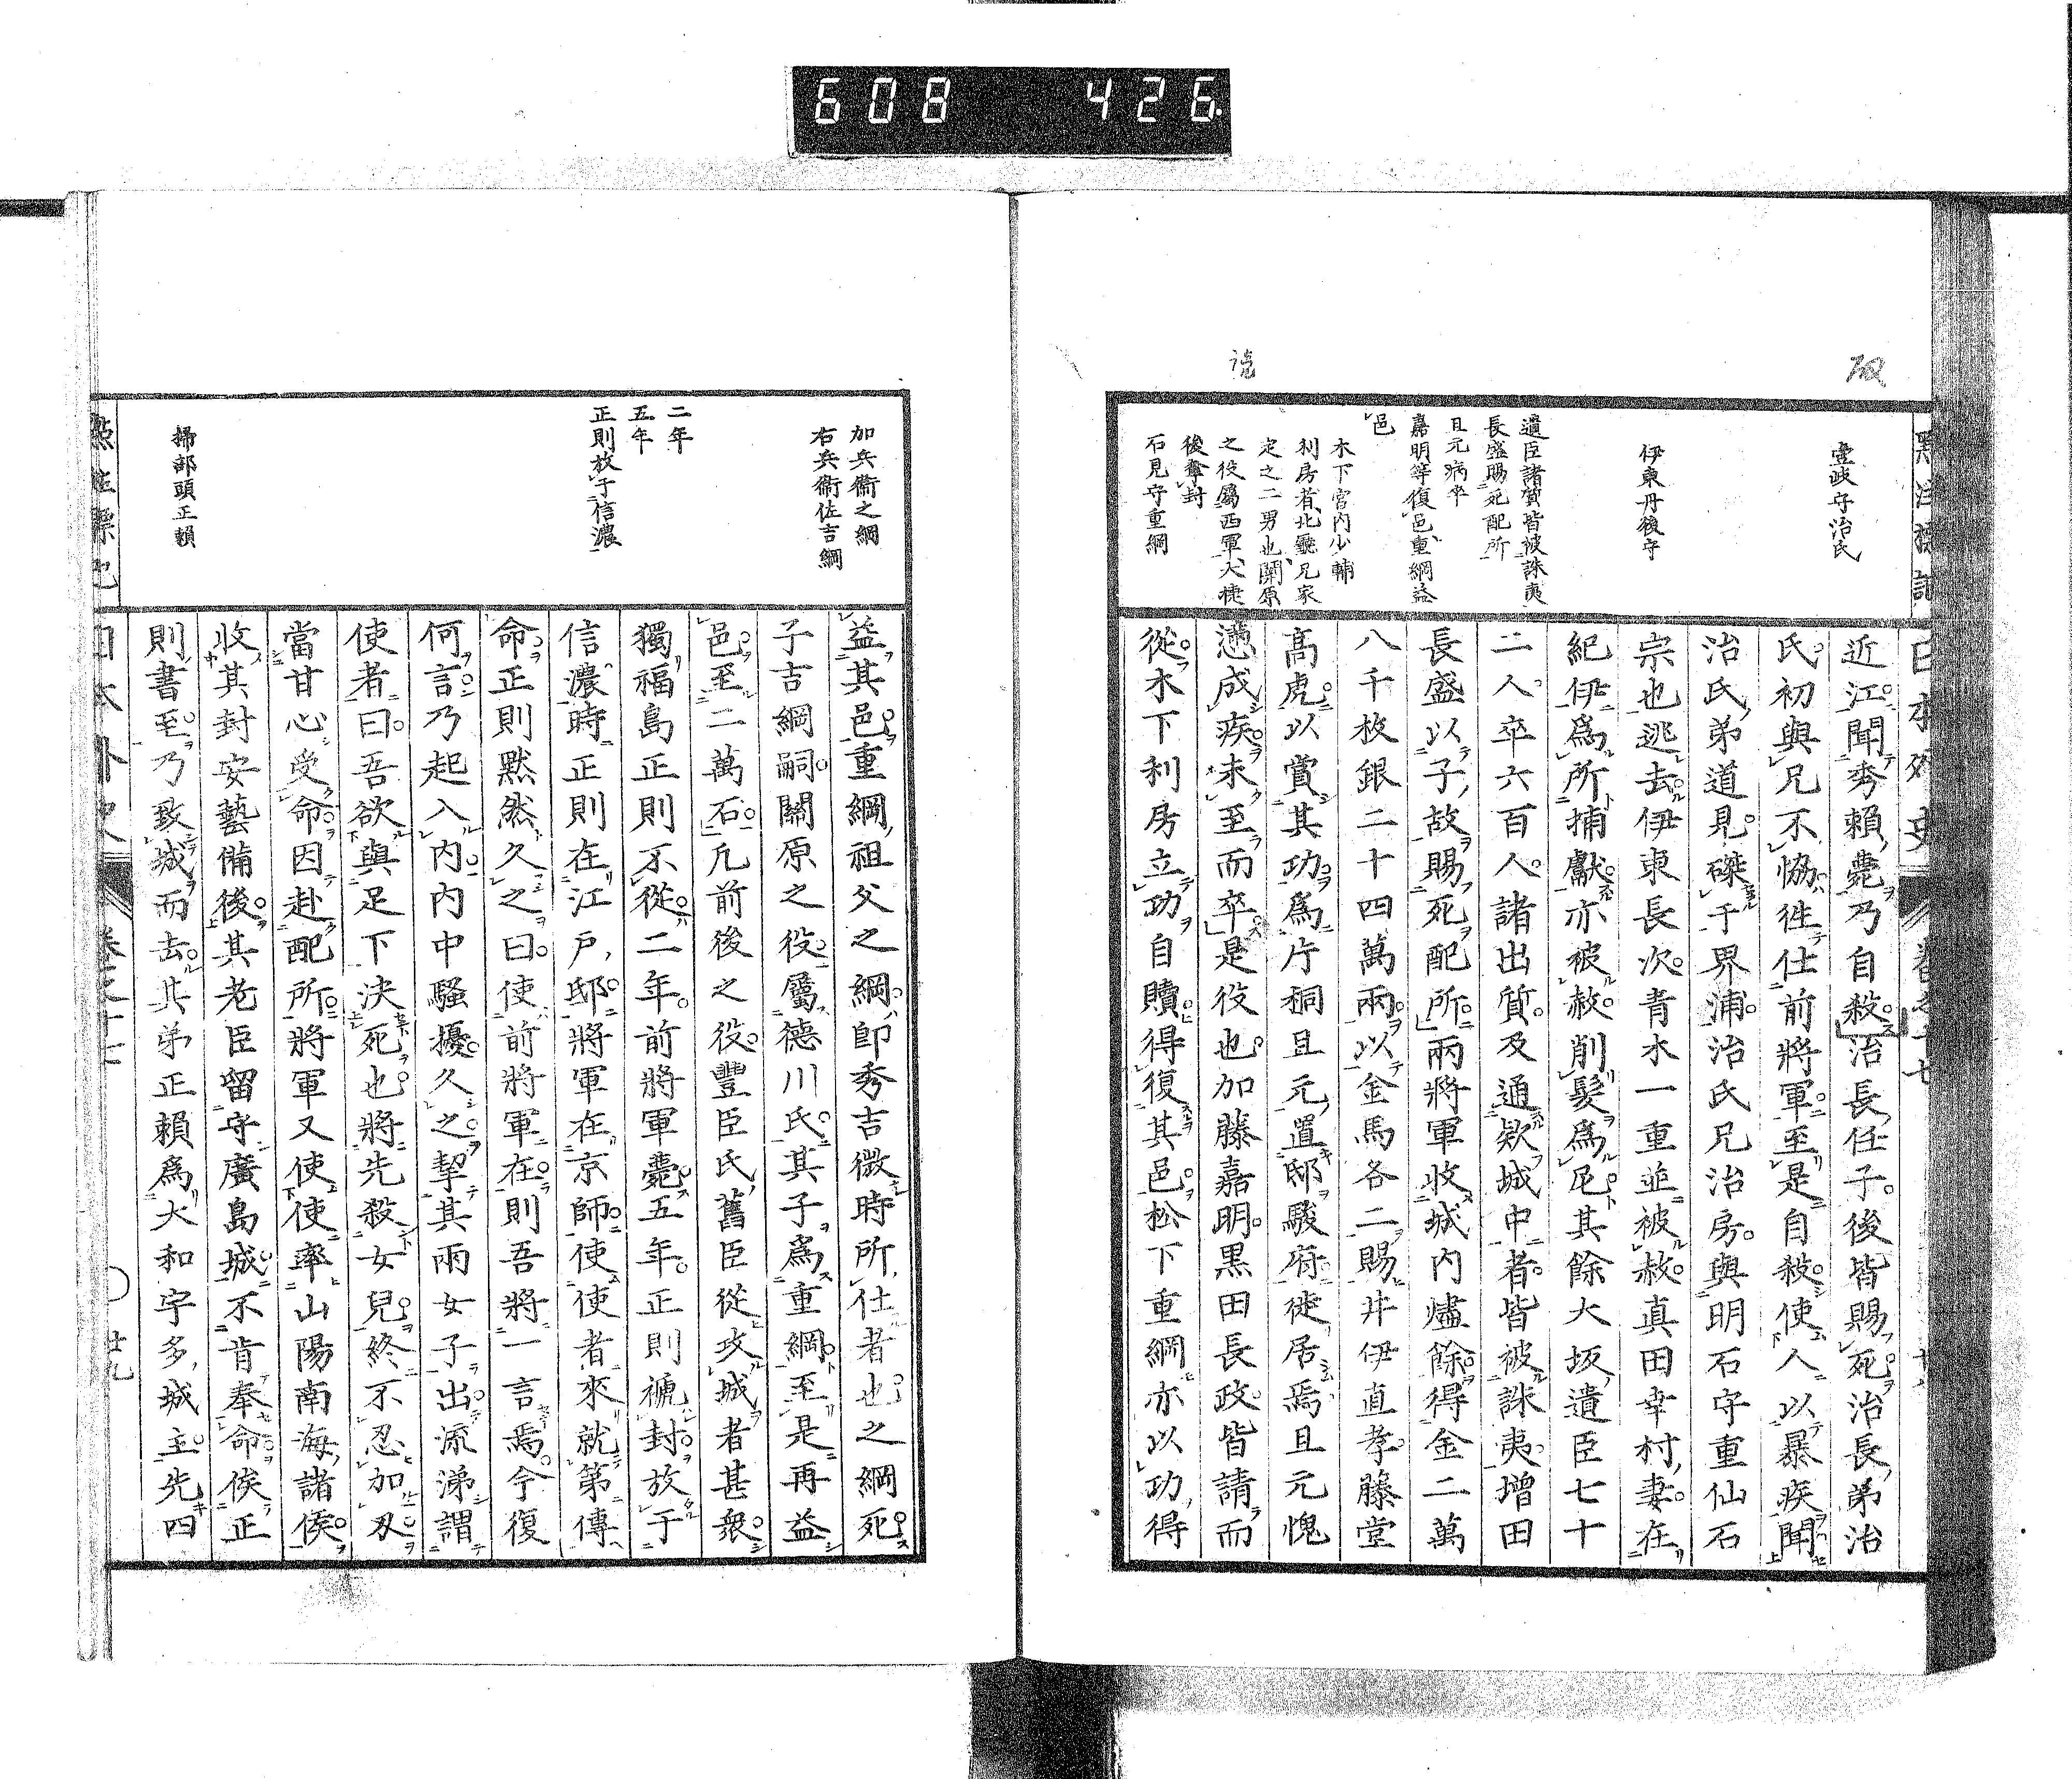 608 426
壹岐守治氏
伊東丹後守
遺臣諸質皆被誅夷
長盛賜死配所
且元病卒
嘉明等復邑、重綱益
邑
木下宮内少輔
利房者、北廳兄家
定之二男也、關原
之役屬西軍、大捷
後奪封
石見守重綱
近江聞秀賴薨乃自殺治長任子後皆賜死治長弟治
氏初與兄不恊徃仕前將軍至是自殺使人以暴疾聞
治氏弟道見磔于界浦治氏兄治房與明石守重仙石
宗也逃去伊東長次青木一重並被赦真田幸村妻在
紀伊爲所捕獻亦被赦削髮爲尼其餘大坂遺臣七十
二人卒六百人諸出質及通欵城中者皆被誅夷增田
長盛以子故賜死配所兩將軍收城内燼餘得金二萬
八千枚銀二十四萬兩以金馬各二賜井伊直孝藤堂
高虎以賞其功爲片桐且元置邸駿府徙居焉且元愧
懣成疾未至而卒是役也加藤嘉明黒田長政皆請而
從木下利房立功自贖得復其邑松下重綱亦以功得
加兵衞之綱
右兵衞佐吉綱
二年
五年
正則放于信濃
掃部頭正賴
益其邑重綱祖父之綱即秀吉微時所仕者也之綱死
子吉綱嗣關原之役屬德川氏其子爲重綱至是再益
邑至二萬石凡前後之役豐臣氏舊臣從攻城者甚衆
獨福島正則不從二年前將軍薨五年正則褫封放于
信濃時正則在江戸邸將軍在京師使使者來就第傳
命正則默然久之曰使前將軍在則吾將一言焉今復
何言乃起入内内中騷擾久之挈其兩女子出流涕謂
使者曰吾欲與足下決死也將先殺女兒終不忍加刃
當甘心受命因赴配所將軍又使使率山陽南海諸侯
收其封安藝備後其老臣留守廣島城不肯奉命俟正
則書至乃致城而去其弟正賴爲大和宇多城主先四